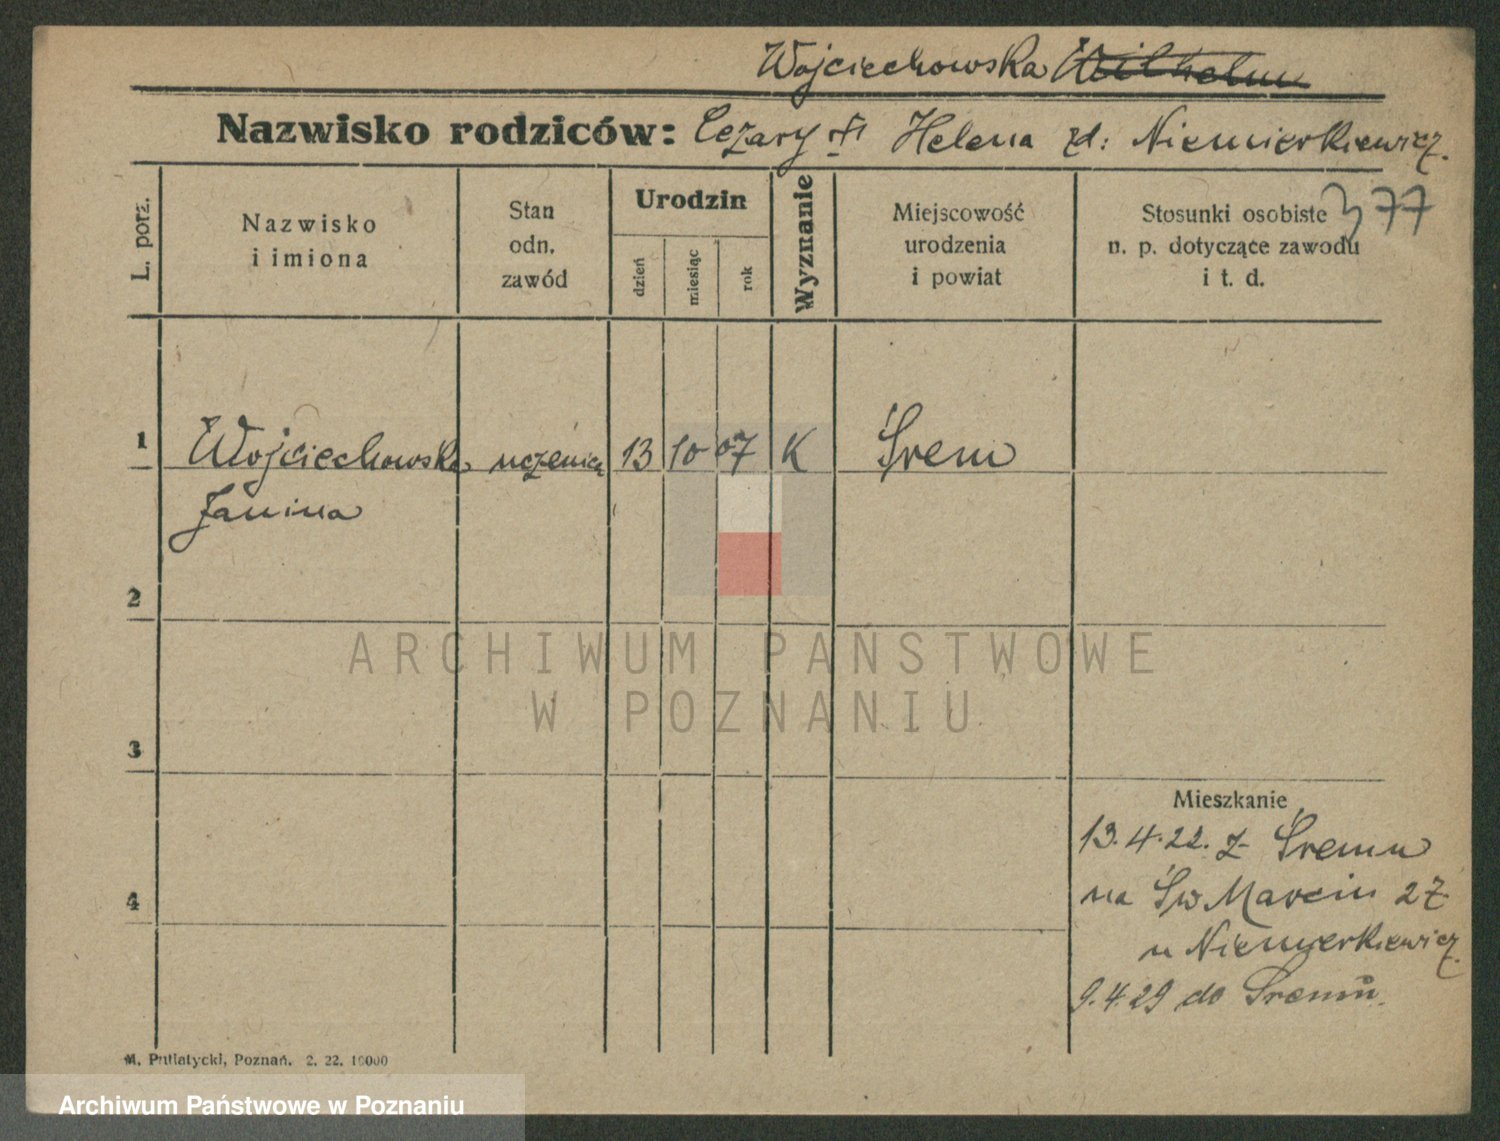 Wojciechowska Wilhelm
Nazwisko rodziców: Cezary Helena zd: Niemierkiewicz.
377
L. porz.
Nazwisko
i imiona
Stan
odn.
zawód
Urodzin
dzień
miesiąc
rok
Wyznanie
Miejscowość
urodzenia
i powiat
Stosunki osobiste
n. p. dotyczące zawodu
i t. d.
1
Wojciechowska uczenica 13 10 07 K Śrem
Janina
2
ARCHIWUM PAŃSTWOWE
W POZNANIU
3
Mieszkanie
13.4.22. z Śremu
4
na Św Marcin 27
u Niemierkiewicz.
9.4.29 do Śremu.
M. Putiatycki, Poznań. 2. 22. 10000
Archiwum Państwowe w Poznaniu